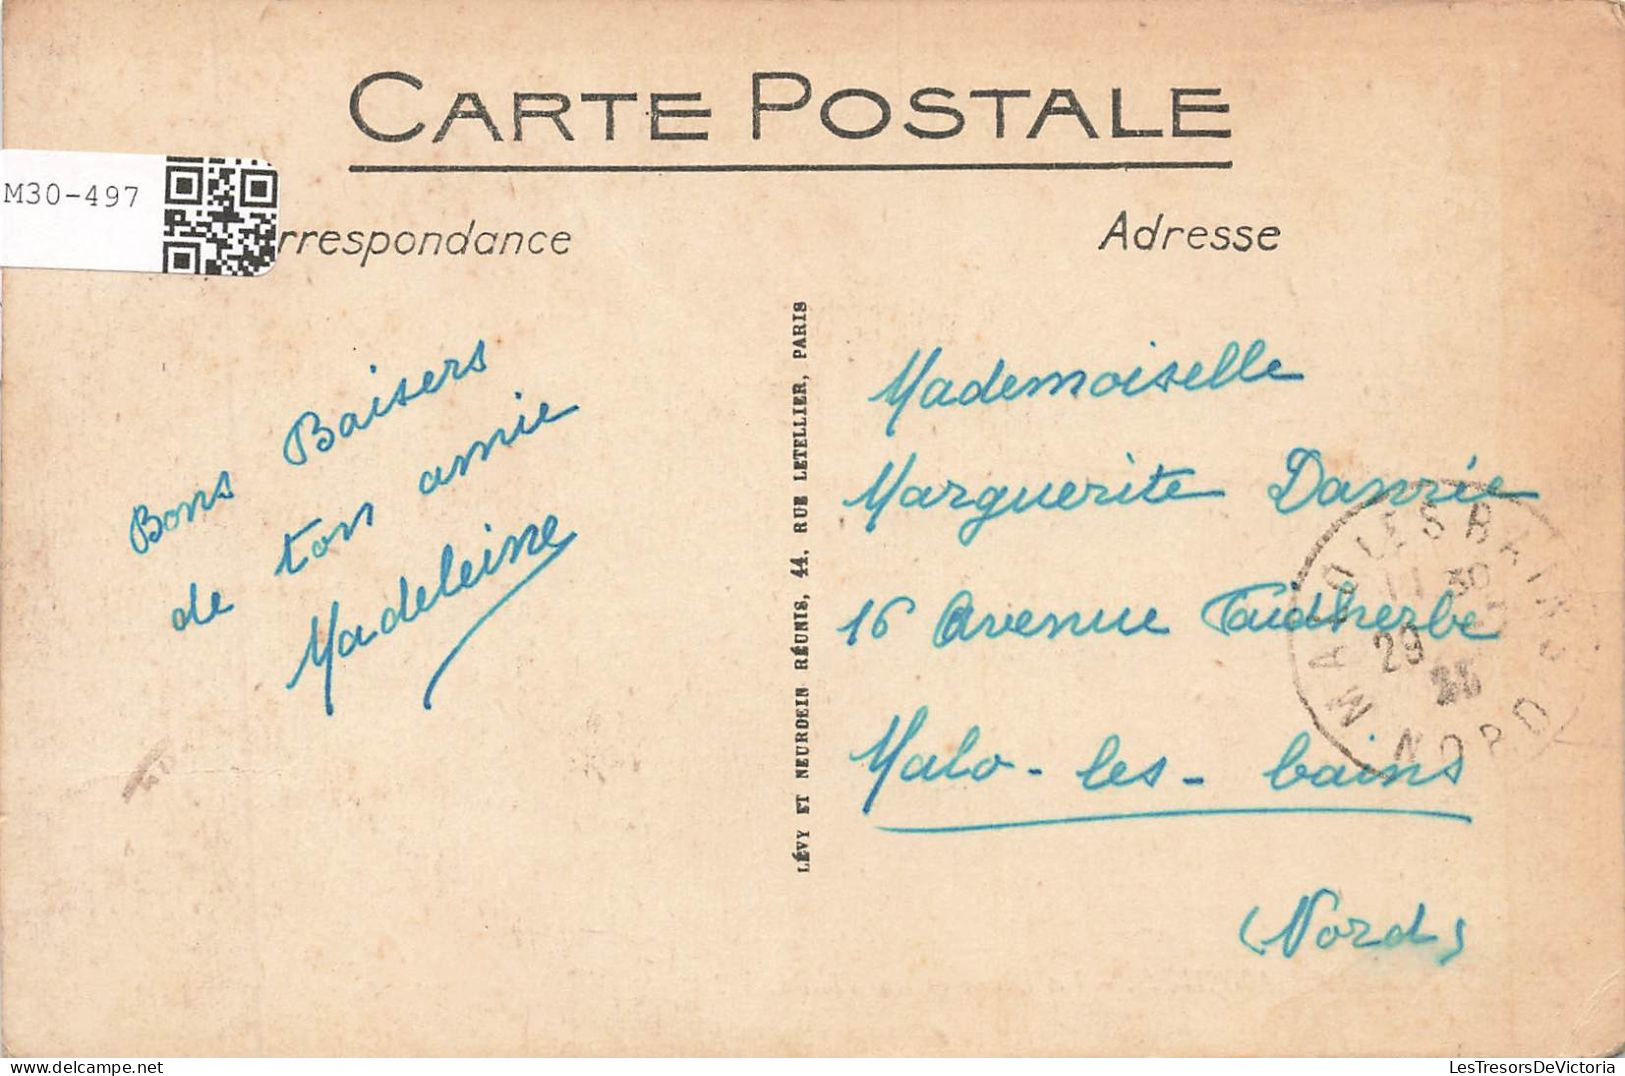 CARTE POSTALE
M30-497
rrespondance
Adresse
Bons Baisers
de ton amie
Madeleine
LÉVY ET NEURDEIN RÉUNIS, 44, RUE LETELLIER, PARIS
Mademoiselle
Marguerite Danrée
16 Avenue Faidherbe
Malo-les-bains
(Nord)
MALO LES BAINS
11 30
29
NORD
LesTresorsDeVictoria
delcampe.net